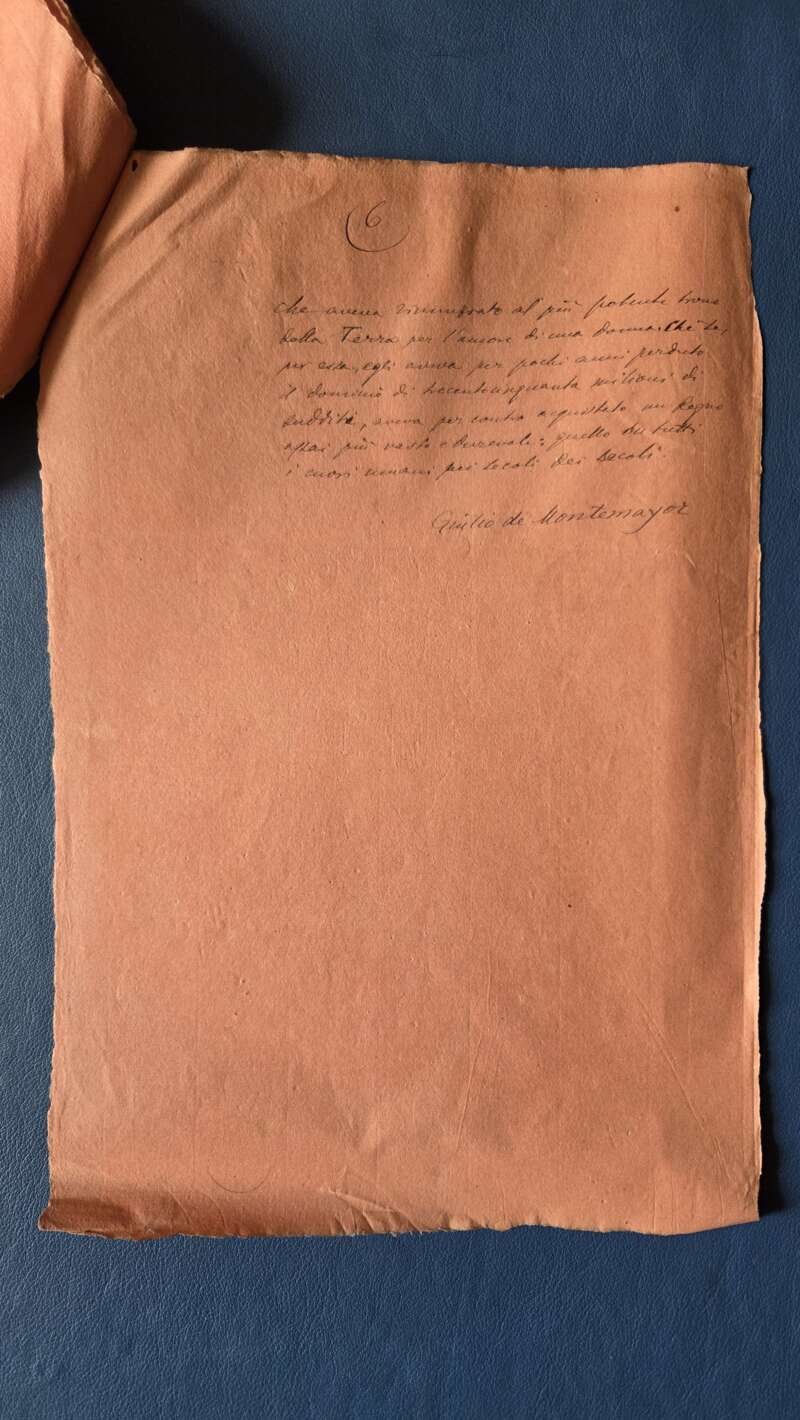 6
che aveva rinunziato al più potente trono
della Terra per l'amore di una donna. Che se,
per essa, egli aveva per pochi anni perduto
il dominio di trecentocinquanta milioni di
sudditi, aveva per contro acquistato un Regno
assai più vasto e durevole: quello su tutti
i cuori umani pei secoli dei secoli.
Giulio de Montemayor